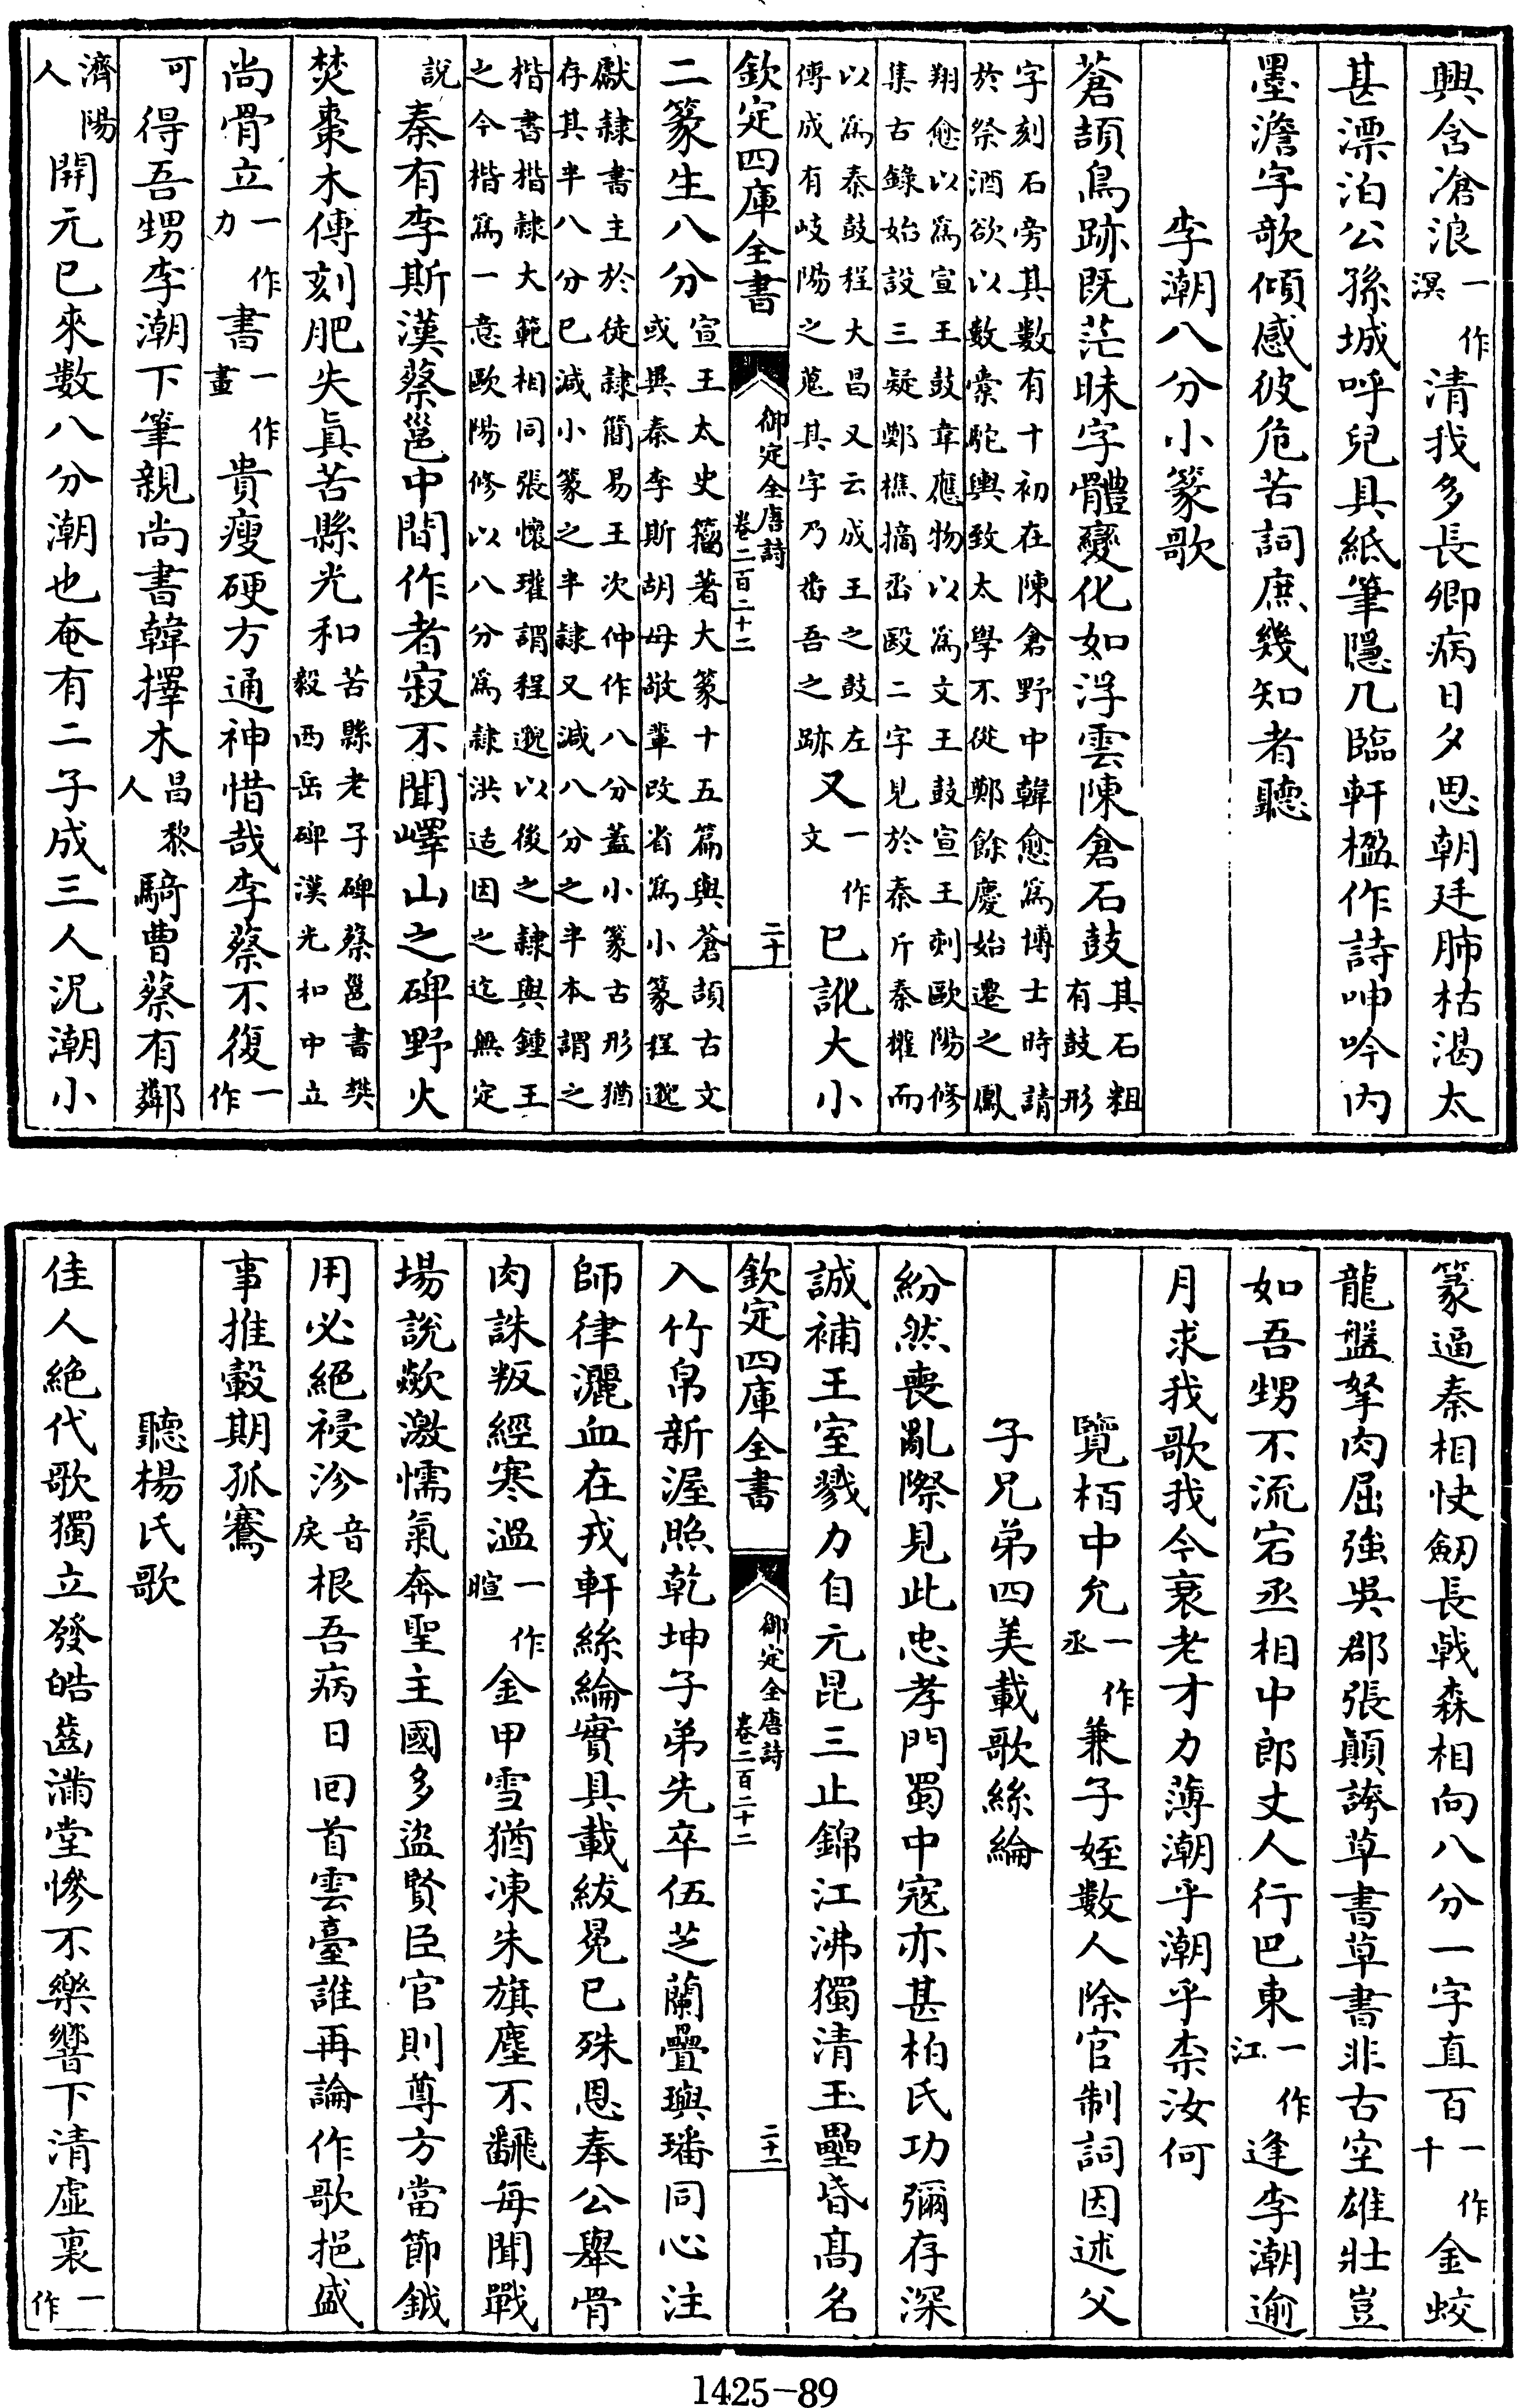 興含滄浪一作溟清我多長卿病日夕思朝廷肺枯渴太
甚漂泊公孫城呼兒具紙筆隱几臨軒楹作詩呻吟内
墨澹字歌傾感彼危苦詞庶幾知者聽
李潮八分小篆歌
蒼頡鳥跡既茫昧字體變化如浮雲陳倉石鼓其石粗有鼓形
字刻石旁其數有十初在陳倉野中韓愈為博士時請
於祭酒欲以數橐駝輿致太學不從鄭餘慶始遷之鳳
翔愈以為宣王鼓韋應物以為文王鼓宣王刻歐陽修
集古錄始設三疑鄭樵摘丞殹二字見於秦斤秦權而
以為秦鼓程大昌又云成王之鼓左
傳成有岐陽之蒐其字乃番吾之跡又一作文已訛大小
欽定四庫全書
御定全唐詩
卷二百二十二
二十
二篆生八分宣王太史籀著大篆十五篇與蒼頡古文
或異秦李斯胡母敬輩改省為小篆程邈
獻隸書主於徒隸簡易王次仲作八分蓋小篆古形猶
存其半八分已減小篆之半隸又減八分之半本謂之
楷書楷隸大範相同張懷瓘謂程邈以後之隸與鍾王
之今楷為一意歐陽修以八分為隸洪适因之迄無定
說秦有李斯漢蔡邕中間作者寂不聞嶧山之碑野火
焚棗木傳刻肥失真苦縣光和苦縣老子碑蔡邕書樊毅西岳碑漢光和中立
尚骨立一作力書一作畫貴瘦硬方通神惜哉李蔡不復一作
可得吾甥李潮下筆親尚書韓擇木昌黎人騎曹蔡有鄰
濟陽人開元已來數八分潮也奄有二子成三人況潮小
篆逼秦相快劒長戟森相向八分一字直百一作千金蛟
龍盤拏肉屈強吳郡張顛誇草書草書非古空雄壯豈
如吾甥不流宕丞相中郎丈人行巴東一作江逢李潮逾
月求我歌我今衰老才力薄潮乎潮乎柰汝何
覽栢中允一作丞兼子姪數人除官制詞因述父
子兄弟四美載歌絲綸
紛然喪亂際見此忠孝門蜀中寇亦甚柏氏功彌存深
誠補王室戮力自元昆三止錦江沸獨清玉壘昏髙名
欽定四庫全書
御定全唐詩
卷二百二十二
二十一
入竹帛新渥照乾坤子弟先卒伍芝蘭疊璵璠同心注
師律灑血在戎軒絲綸實具載紱冕已殊恩奉公舉骨
肉誅叛經寒溫一作暄金甲雪猶凍朱旗塵不飜每聞戰
場說欻激懦氣奔聖主國多盜賢臣官則尊方當節鉞
用必絕祲沴音戾根吾病日回首雲臺誰再論作歌挹盛
事推轂期孤騫
聽楊氏歌
佳人絕代歌獨立發皓齒滿堂慘不樂響下清虛裏一作
1425-89